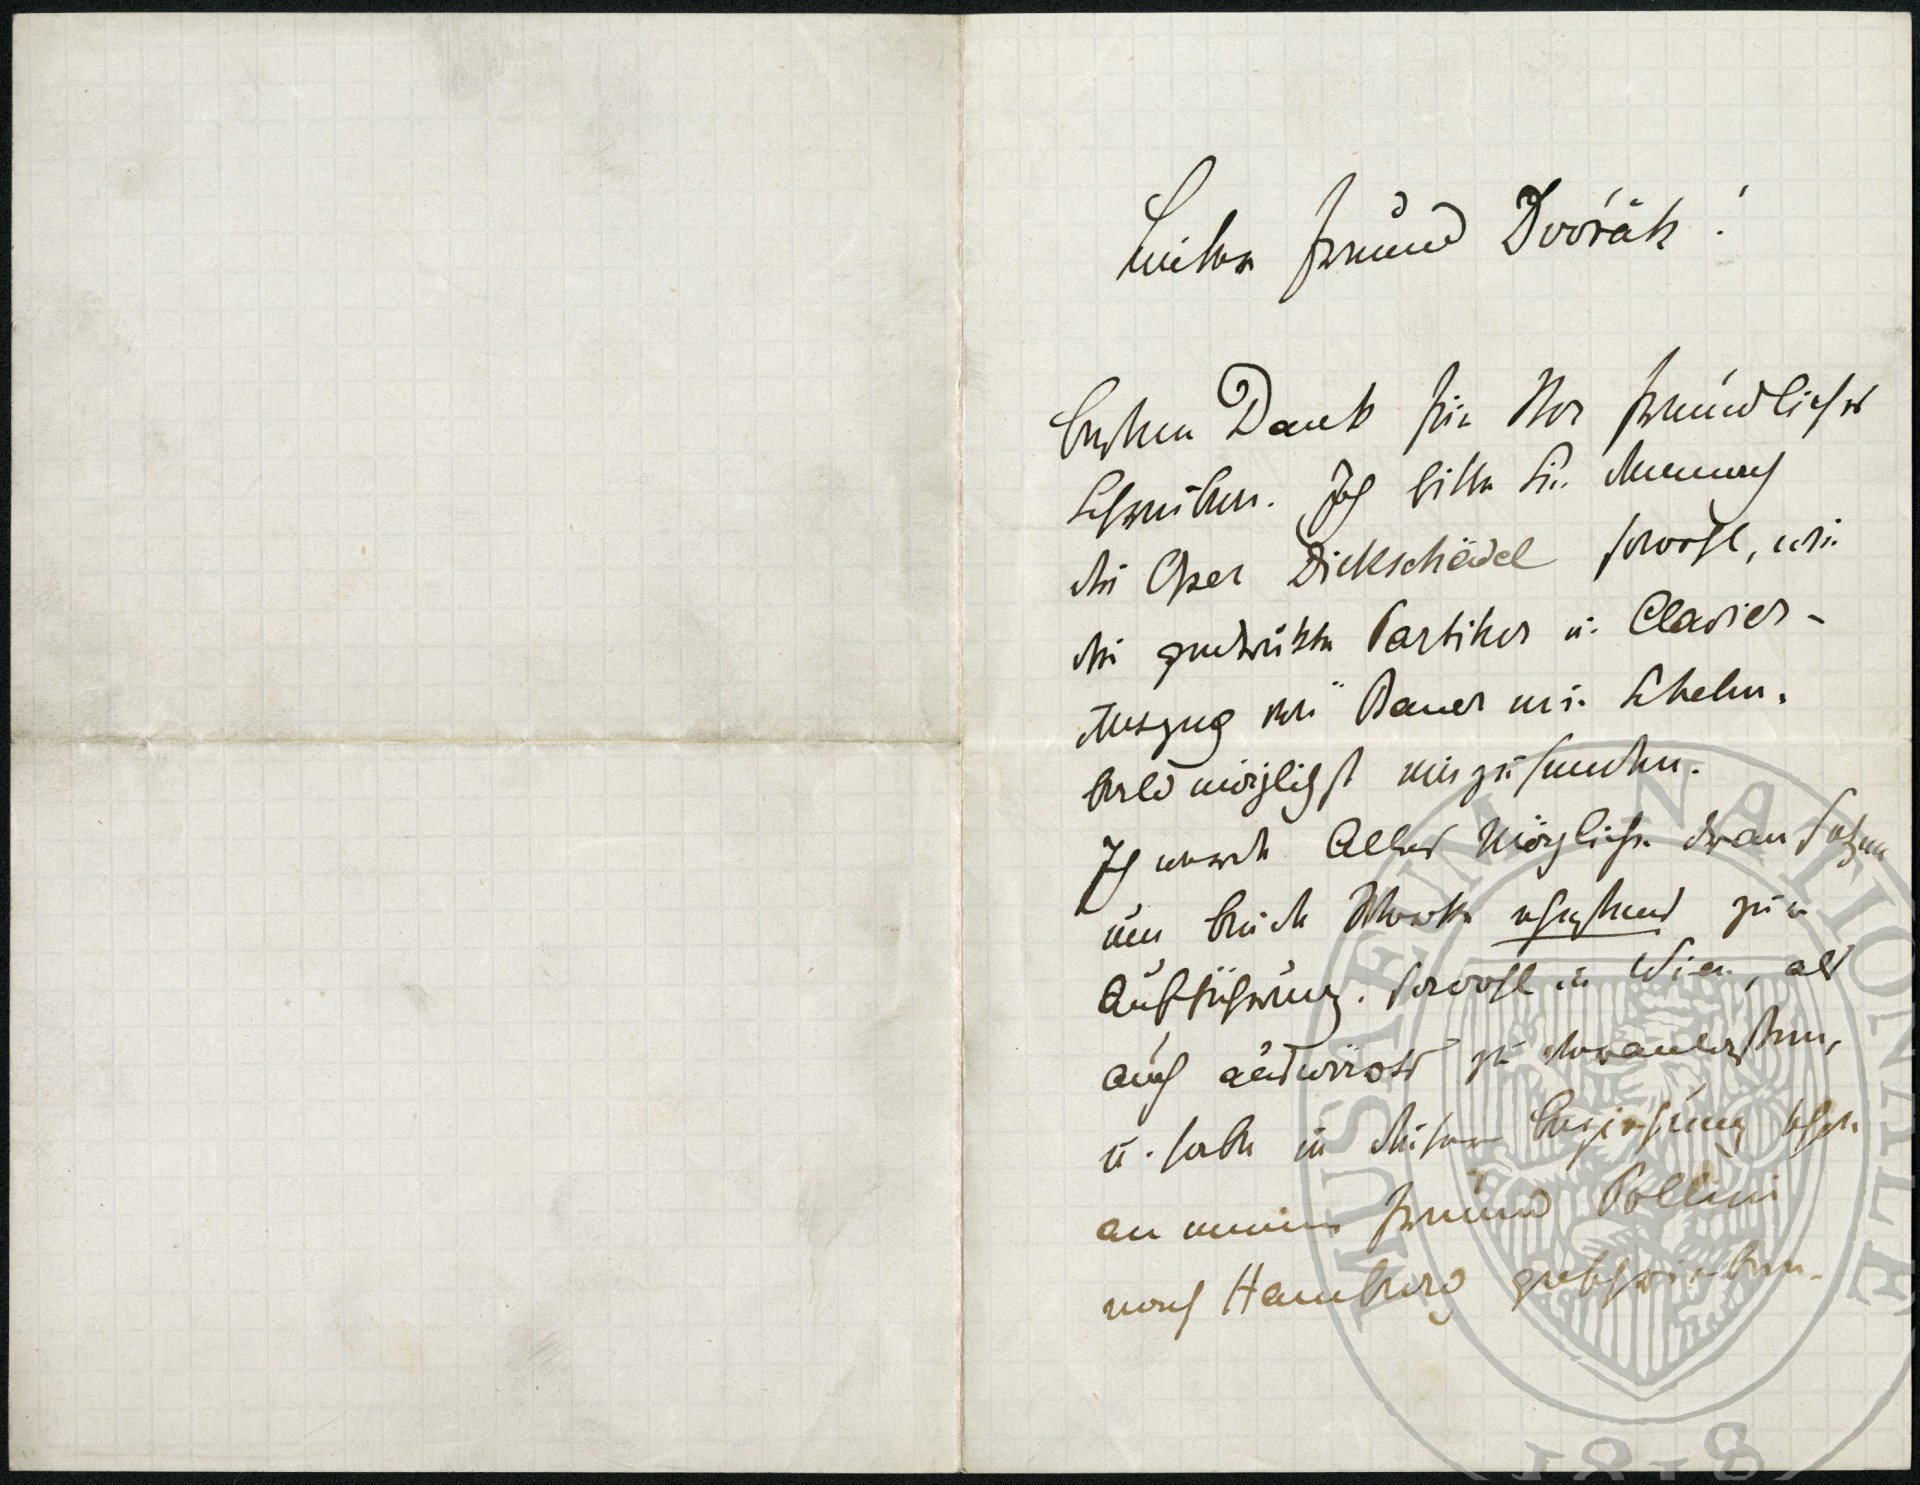 Lieber Freund Dvořák!
besten Dank für Ihr freundliches
Schreiben. Ich bitte Sie demnach
die Oper Dickschädel sowohl, wie
die gedruckte Partitur u. Clavier-
Auszug von Bauer wie Schelm.
baldmöglichst einzusenden.
Ich werde Alles Mögliche dran setzen
um beide Werke ehestens zur
Aufführung. sowohl in Wien, als
auch auswärts zu veranlassen,
u. habe in dieser Beziehung schon
an meinen Freund Pollini
nach Hamburg geschrieben.
MUSEUM NATIONALE
1818